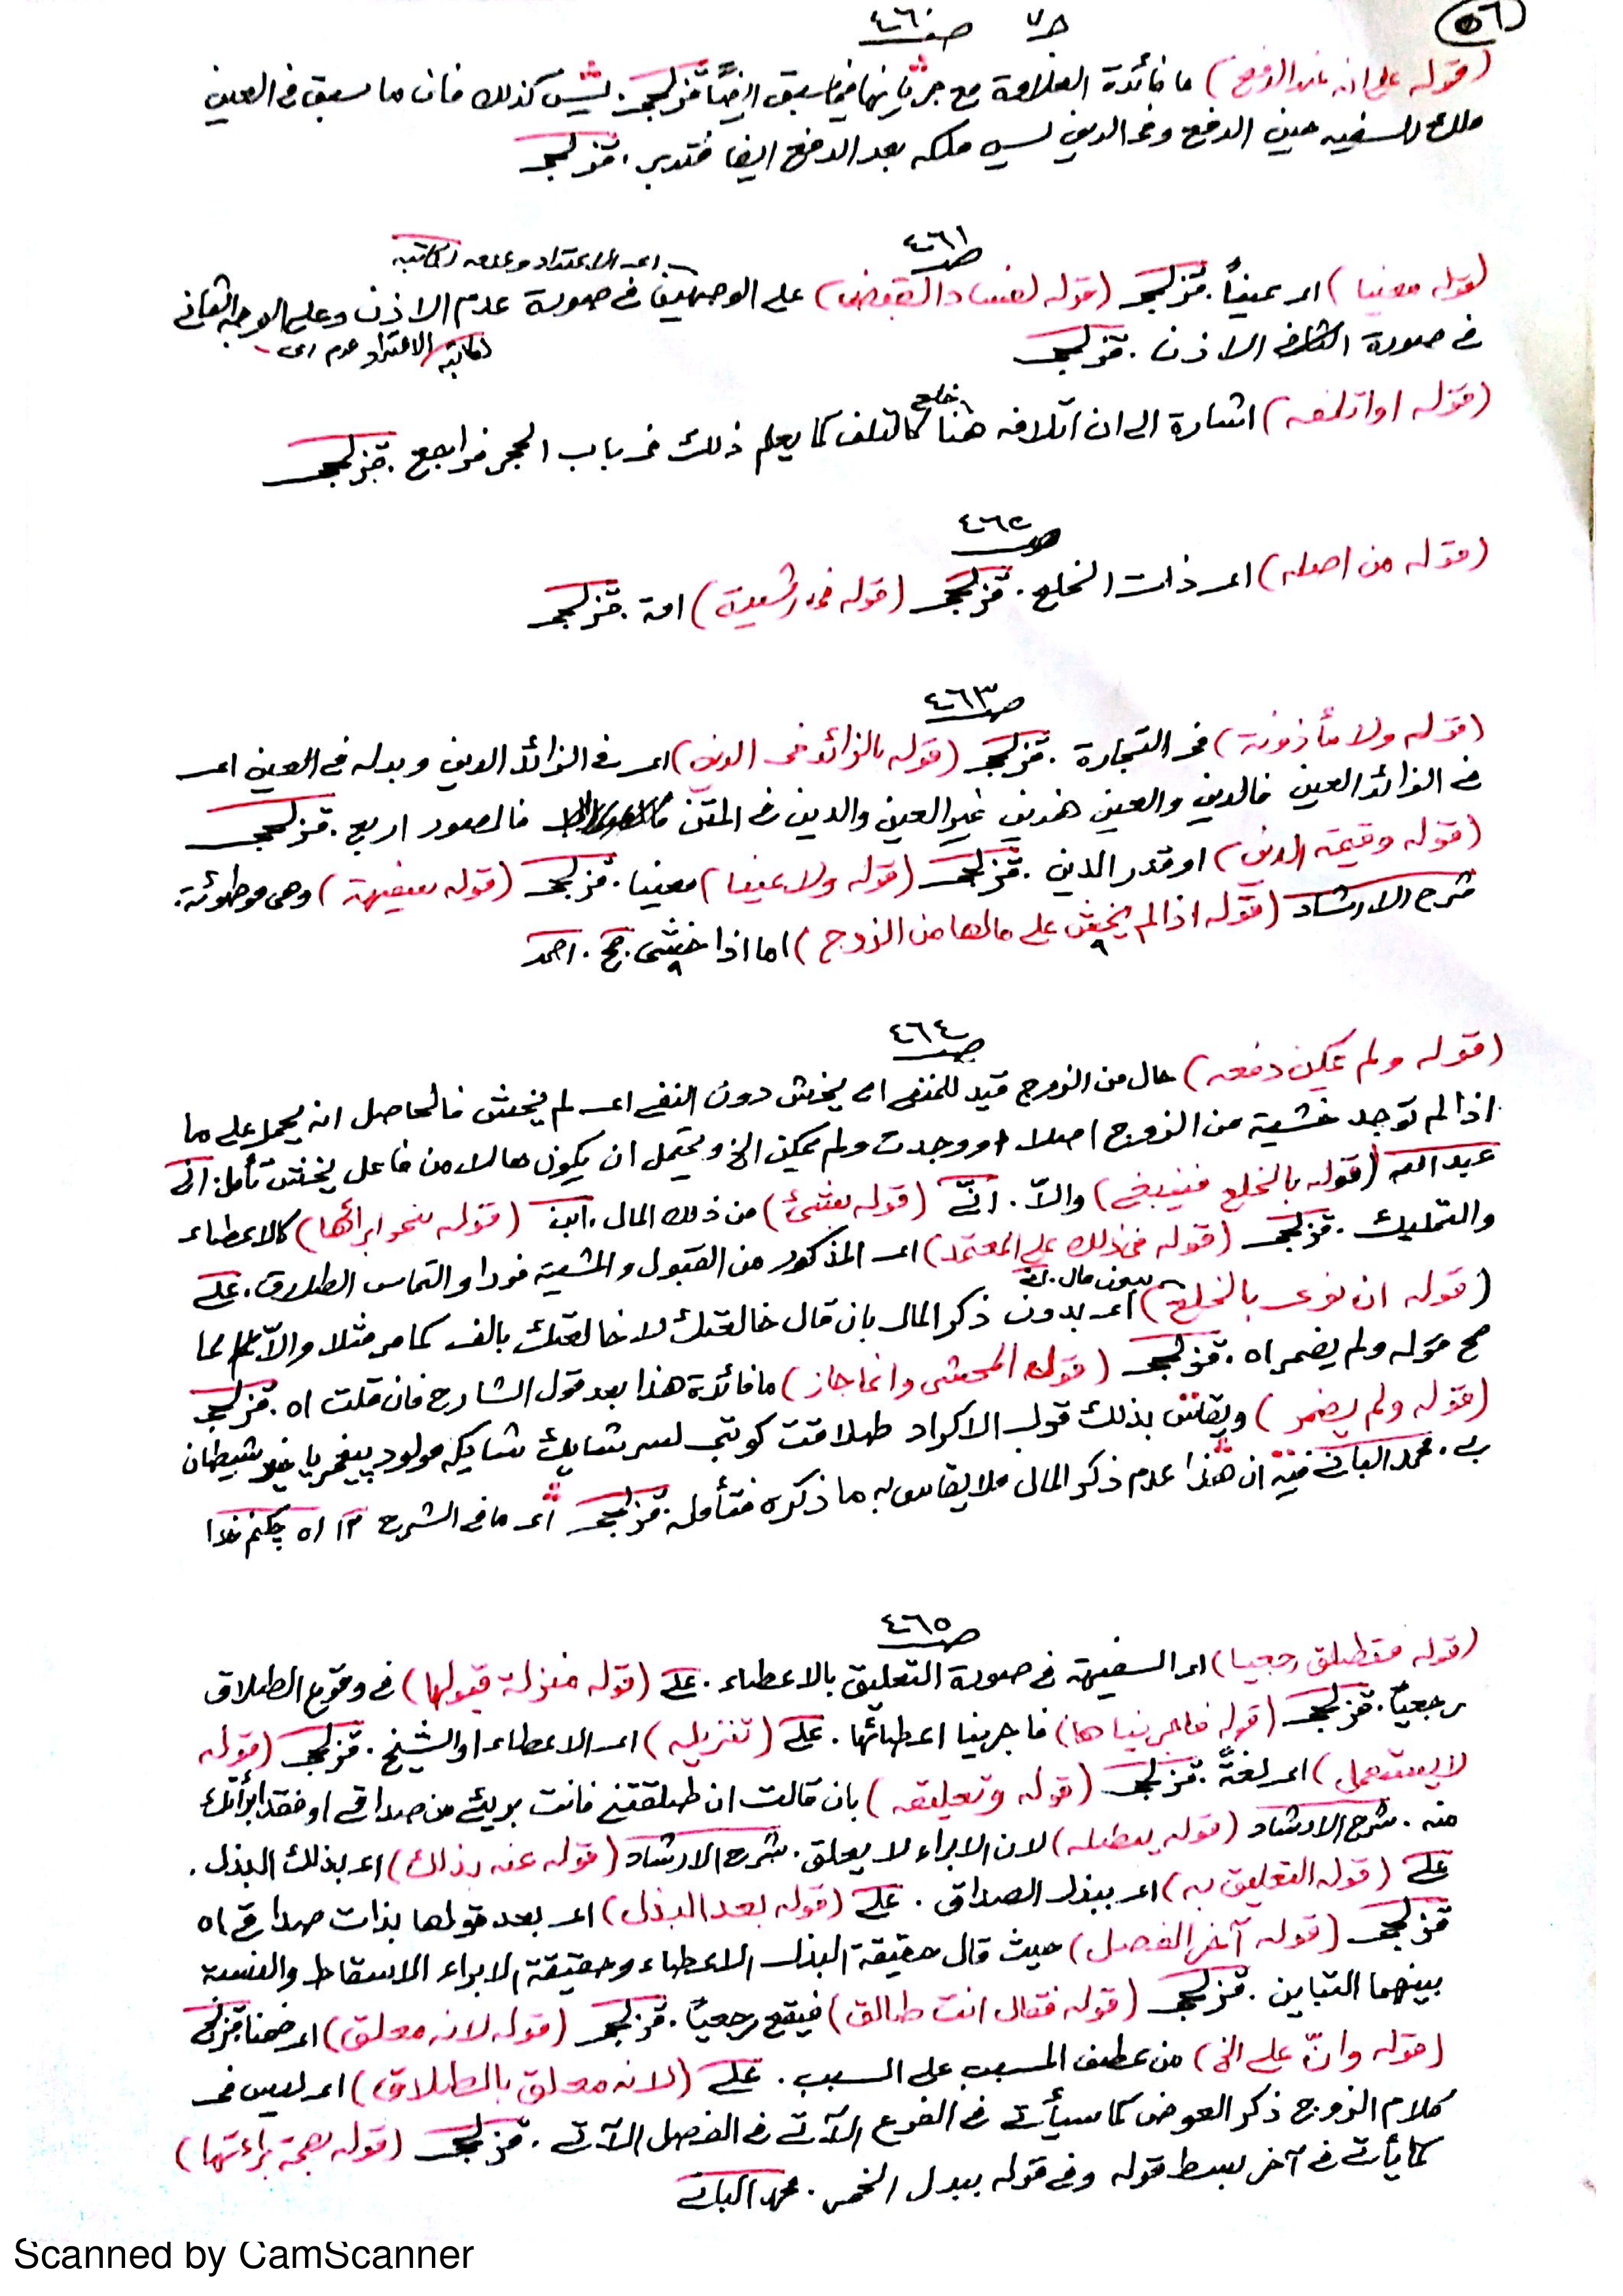 ٥٦
ج٧ صـ ٤٦٠
(قوله على انه عند الدفع) ما فائدة العلاوة مع جريانها فيما سبق ايضاً قزلجي. ليس كذلك فان ما سبق في العين
ملك للسفيه حين الدفع وفي الدين ليس ملكه بعد الدفع ايضا فتدبر. قزلجي
صـ ٤٦١
اى الاعتداد وعدمه لكاتبه
(قوله معينا) اى عيناً. قزلجي (قوله لفساد القبض) على الوجهين في صورة عدم الاذن وعلى الوجه الثاني
في صورة الاذن. قزلجي
اى عدم الاعتداد لكاتبه
(قوله او اتلفه) اشارة الى ان اتلافه هنا كالتلف كما يعلم ذلك في باب الحجر فراجع. قزلجي
صـ ٤٦٢
(قوله من اصله) اى ذات الخلع. قزلجي (قوله في رشيدة) امة. قزلجي
صـ ٤٦٣
(قوله ولا مأذونة) في التجارة. قزلجي (قوله بالزائد في الدين) اى في الزائد الدين وبدله في العين اى
في الزائد العين فالدين والعين هذين غير العين والدين في المتن فالصور اربع. قزلجي
(قوله وقيمة الدين) او قدر الدين. قزلجي (قوله ولا عينا) معينا. قزلجي (قوله سفيهة) وهى موطوئة.
شرح الارشاد (قوله اذا لم يخش على مالها من الزوج) اما اذا خشى. حج. احمد
صـ ٤٦٤
(قوله ولم يمكن دفعه) حال من الزوج قيد للمنفى اى يخش دون النفى اى لم يخش فالحاصل انه يحمل على ما
اذا لم توجد خشية من الزوج اصلا او وجدت ولم يمكن الخ ويحتمل ان يكون حالا من فاعل يخش تأمل.
عبد الله (قوله بالخلع فينبغى) والاّ. (قوله بشئ) من ذلك المال. ابن (قوله نحو ابرائها) كالاعطاء
والتمليك. قزلجي (قوله في ذلك على المعتمد) اى المذكور من القبول والمشية فورا والتماس الطلاق. على
بدون مال.
(قوله ان نوى بالخلع) اى بدون ذكر المال بان قال خالعتك لا خالعتك بالف كما مر مثلا والاّ لما
صح قوله ولم يضمر اه. قزلجي (قوله المحشى وانما جاز) ما فائدة هذا بعد قول الشارح فان قلت اه. قزلجي
(قوله ولم يضمر) ويقاس بذلك قول الاكراد طلاقت كوتى لسر مولود پيغمبر يا شيطان
بى. محمد البانى فيه ان هذا عدم ذكر المال فلا يقاس به ما ذكره فتأمل. قزلجي اى ما في الشرح
صـ ٤٦٥
(قوله فتطلق رجعيا) اى السفيهة في صورة التعليق بالاعطاء. على (قوله منزلة قبولها) في وقوع الطلاق
رجعياً. قزلجي (قوله فاجريناها) فاجرينا اعطائها. على (تنزيله) اى الاعطاء او الشيخ. قزلجي (قوله
لا يستعمل) اى لغةً. قزلجي (قوله وتعليقه) بان قالت ان طلقتنى فانت برئ من صداقى او فقد ابرأتك
منه. شرح الارشاد (قوله يبطله) لان الابراء لا يعلق. شرح الارشاد (قوله عنه بذلك) اى بذلك البذل.
على (قوله التعليق به) اى ببذل الصداق. على (قوله بعد البذل) اى بعد قولها بذلت صداقى اه
قزلجي (قوله آخر الفصل) حيث قال حقيقة البذل الاعطاء وحقيقة الابراء الاسقاط والنسبة
بينهما التباين. قزلجي (قوله فقال انت طالق) فيقع رجعياً. قزلجي (قوله لانه معلق) اى ضمنا قزلجي
(قوله وانّ على الخ) من عطف المسبب على السبب. على (لانه معلق بالطلاق) اى ليس في
كلام الزوج ذكر العوض كما سيأتى في الفرع الآتى في الفصل الآتى. قزلجي (قوله بصحة براءتها)
كما يأتى في آخر بسط قوله وفى قوله ببدل الخمر. محمد البانى
Scanned by CamScanner